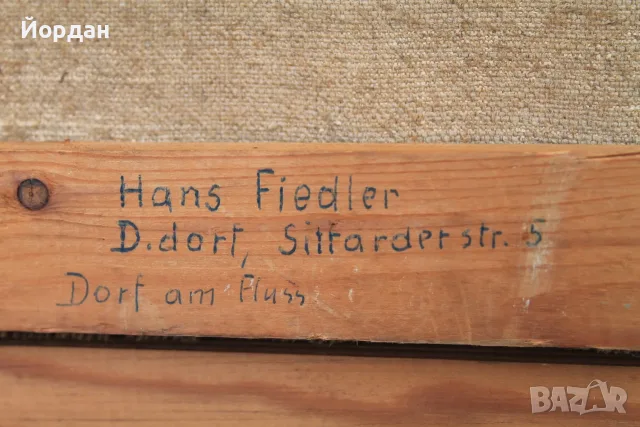 Йордан
Hans Fiedler
D.dorf, Sittarderstr. 5
Dorf am Fluss
BAZAR